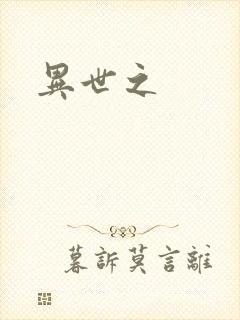 異世之
暮訴莫言離